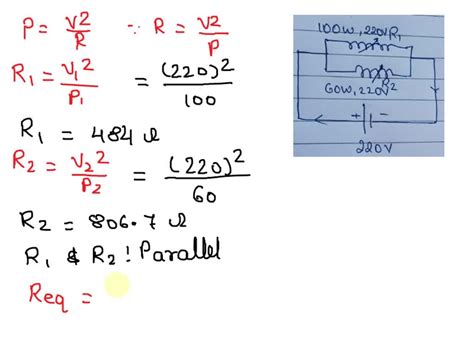 P = V2/R ∵ R = V2/P
R1 = V1^2/P1 = (220)^2/100
R1 = 484 Ω
R2 = V2^2/P2 = (220)^2/60
R2 = 806.7 Ω
R1 & R2 : Parallel
Req =
100W, 220V R1
60W, 220V R2
+ -
220V